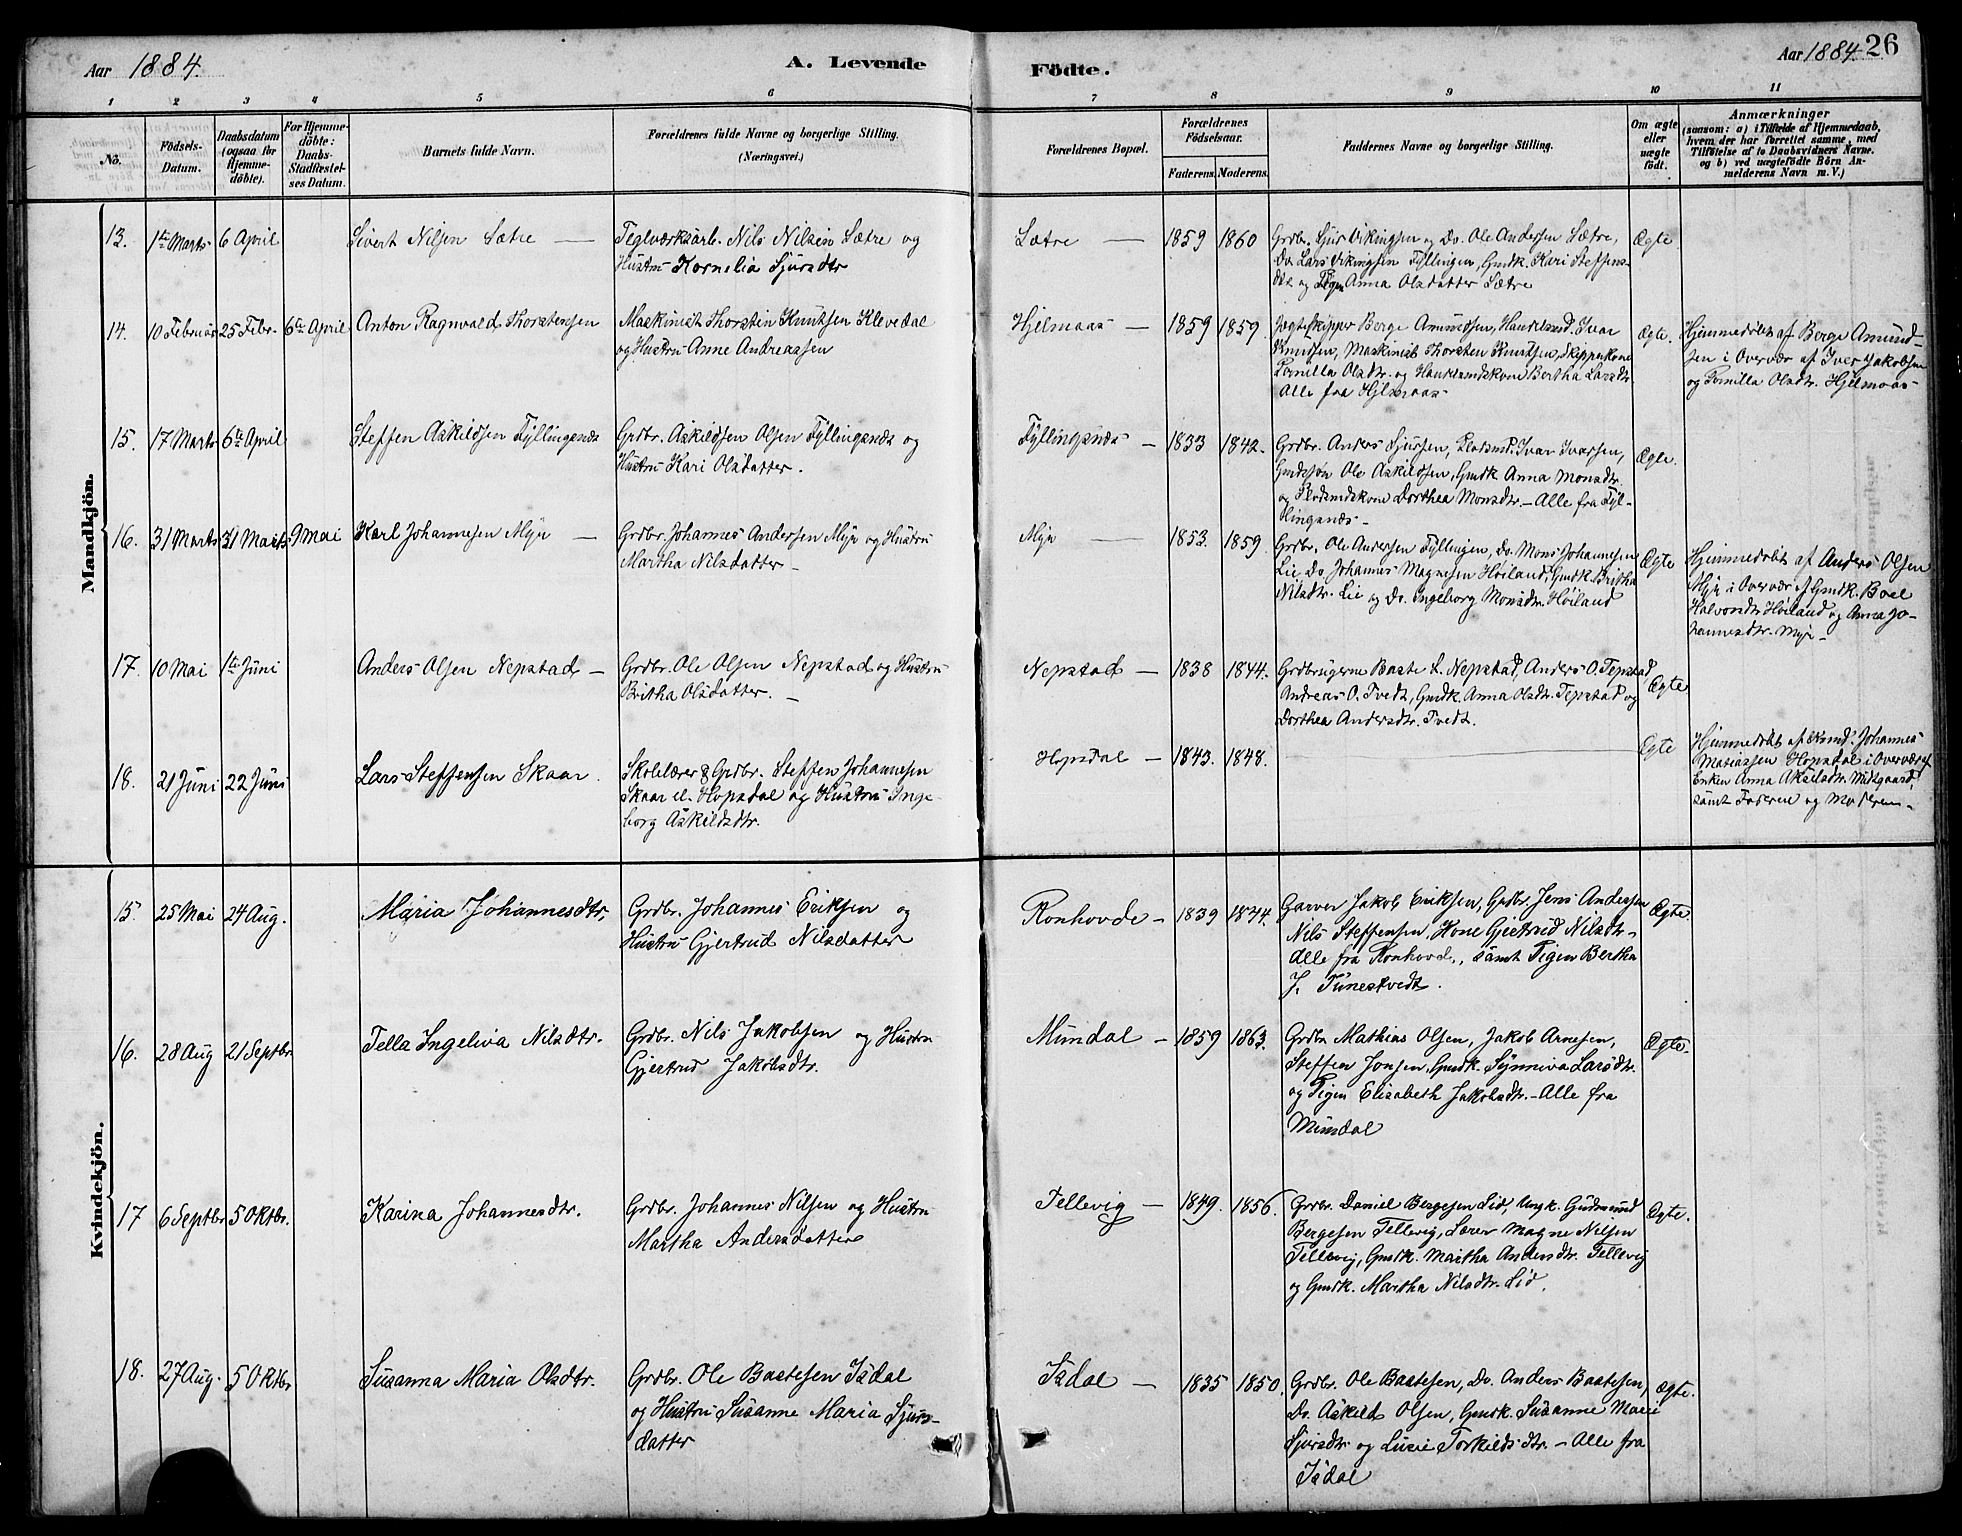 Aar 1884. A. Levende Födte. Aar 1884. 26
1 2 3 4 5 6 7 8 9 10 11
No.
Födsels-
Datum.
Daabsdatum
(ogsaa for
Hjemme-
döbte).
For Hjemme-
döbte:
Daabs-
Stadfæstel-
ses Datum.
Barnets fulde Navn.
Forældrenes fulde Navne og borgerlige Stilling.
(Næringsvei.)
Forældrenes Bopæl.
Forældrenes
Födselsaar.
Faderens. Moderens.
Faddernes Navne og borgerlige Stilling.
Om ægte
eller
uægte
födt.
Anmærkninger
(saasom: a) i Tilfælde af Hjemmedaab,
hvem der har forrettet samme, med
Tilföielse af to Daabsvidners Navne.
og b) ved uægtefödte Börn An-
melderens Navn m. V.)
Mandkjön.
13. 1te Marts 6 April
Sivert Nilsen Sætre —
Teglværksarb. Nils Nilsen Sætre og
Hustru Kornelia Sjursdtr
Sætre — 1859 1860
Grdbr. Sjur Vikingsen og Do. Ole Andersen Sætre,
Do. Lars Vikingsen Fyllingen, Gmdk. Kari Steffens-
dtr og Pigen Anna Olsdatter Sætre
Ægte.
14. 10 Februar 25 Febr. 6te April
Anton Ragnvald Thorstensen
Maskinist Thorstein Knutsen Klevedal
og Hustru Anne Andreassen
Hjelmaas — 1859 1859.
Jægteskipper Berge Amundsen, Handelsmd. Ivar
Knutsen, Maskinist Thorsten Knutsen, Skipperkone
Pernilla Olsdtr. og Handelsmdskone Bertha Larsdtr.
Alle fra Hjelmaas
Ægte.
Hjemmedöbt af Berge Amund-
sen i Overvær af Iver Jakobsen
og Pernilla Olsdtr. Hjelmaas
15. 17 Marts 6te April
Steffen Askildsen Fyllingsnæs
Grdbr. Askildsen Olsen Fyllingsnæs og
Hustru Kari Olsdatter.
Fyllingsnæs — 1833 1842.
Grdbr. Anders Sjursen, Pladsmd. Ivar Ivarsen,
Gmdssön Ole Askildsen, Gmdk Anna Monsdtr.
og Pladsmdskone Dorthea Monsdtr. – Alle fra Fyl-
lingsnæs
Ægte.
16. 31 Marts 31 Marts 9 Mai
Karl Johannesen Myr —
Grdbr. Johannes Andersen Myr og Hustru
Martha Nilsdatter –
Myr — 1853. 1859.
Grdbr. Ole Andersen Fyllingen, Do. Mons Johannesen
Lie, Do. Johannes Magnesen Höiland, Gmdk. Britha
Nilsdtr. Lie og Do. Ingeborg Monsdtr. Höiland
Ægte
Hjemmedöbt af Anders Olsen
Myr i Overvær af Gmdk. Boel
Halvorsdtr. Höiland og Anna Jo-
hannesdtr. Myr –
17. 10 Mai 1te Juni
Anders Olsen Nepstad –
Grdbr. Ole Olsen Nepstad og Hustru
Britha Olsdatter. –
Nepstad — 1838 1844.
Grdbrugerne Baste L. Nepstad, Anders O. Tepstad,
Andreas O. Tvedt, Gmdk. Anna Olsdtr. Tepstad og
Dorthea Andersdtr. Tvedt.
Ægte
18. 21 Juni 22 Juni
Lars Steffensen Skaar.
Skolelærer & Grdbr. Steffen Johannesen
Skaar el. Hopsdal og Hustru Inge-
borg Askildsdtr.
Hopsdal – 1843. 1848.
Ægte
Hjemmedöbt af Johannes
Matiassen Hopsdal i Overvær af
Enken Anna Akseldtr. Midtgaard,
samt Faderen og Moderen –
Kvindekjön.
15. 25 Mai 24 Aug.
Maria Johannesdtr.
Grdbr. Johannes Eriksen og
Hustru Gjertrud Nilsdatter
Ronhovde – 1839 1844.
Garver Jakob Eriksen, Grdbr. Jens Andersen
Nils Steffensen, Kone Gjertrud Nilsdtr –
Alle fra Ronhovd., samt Pigen Bertha
J. Tunestvedt.
Ægte
16. 28 Aug 21 Septbr
Tella Ingeliva Nilsdtr.
Grdbr. Nils Jakobsen og Hustru
Gjertrud Jakobsdtr.
Mundal — 1859 1863.
Grdbr Mathias Olsen, Jakob Arnesen,
Steffen Jonsen, Gmdk. Synneva Larsdtr.
og Pigen Elisabeth Jakobsdtr. – Alle fra
Mundal
Ægte.
17 6 Septbr 5 Oktbr.
Karina Johannesdtr.
Grdbr. Johannes Nilsen og Hustru
Martha Andersdatter
Tellevig — 1849. 1856.
Grdbr. Daniel Bergesen Lid, Ungk. Gudmund
Bergesen Tellevig, Lærer Magne Nilsen
Tellevig, Gmdk. Martha Andersdtr. Tellevig
og Gmdk. Martha Nilsdtr. Lid.
Ægte.
18. 27 Aug. 5 Oktbr
Susanna Maria Olsdtr.
Grdbr. Ole Bastesen Isdal
og Hustru Susanne Maria Sjurs-
datter
Isdal — 1835 1850.
Grdbr. Ole Bastesen, Do. Anders Bastesen,
Do. Askild Olsen, Gmdk. Susanne Marie
Sjursdtr og Lusie Torkildsdtr. – Alle fra
Isdal
Ægte.